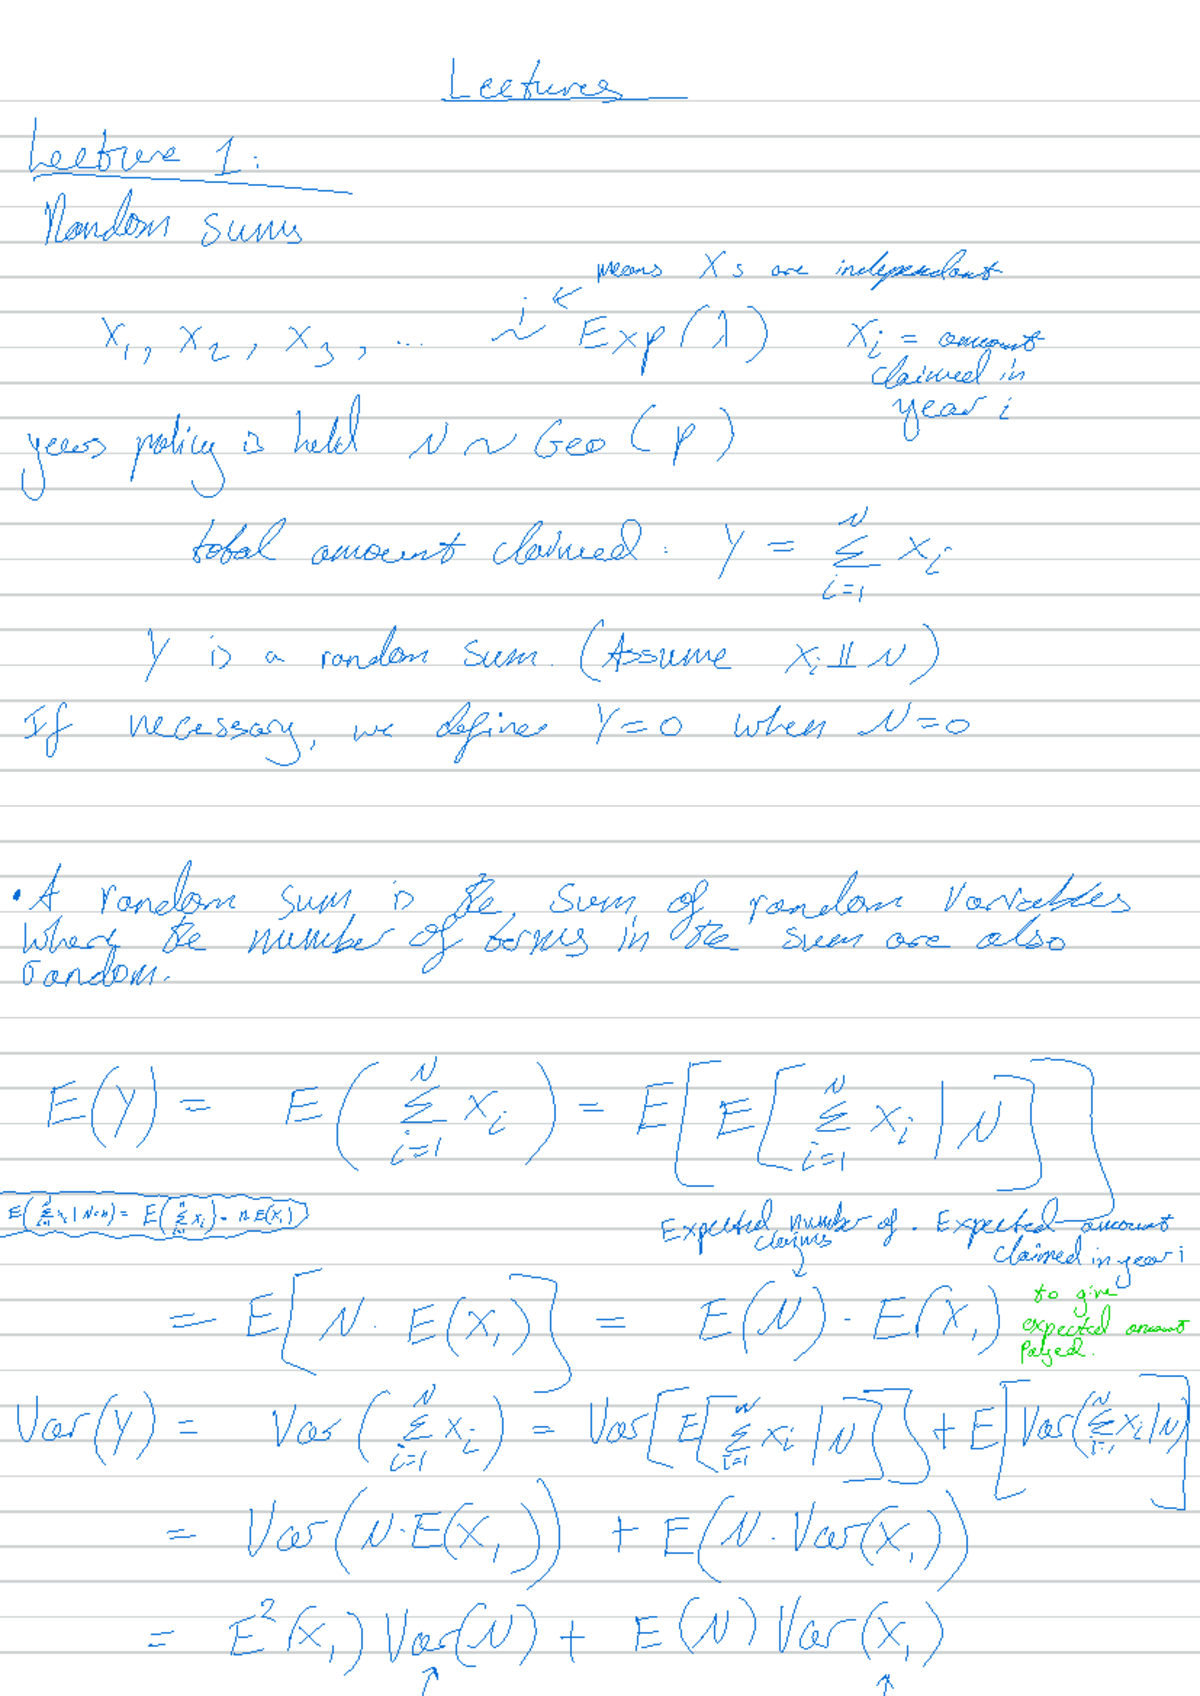 Lectures
Lecture 1:
Random sums
means Xs are independant
X₁, X₂, X₃, ... ~ⁱ Exp(λ) Xᵢ = amount
claimed in
year i
years policy is held N ~ Geo(p)
total amount claimed: Y = Σᵢ₌₁ᴺ Xᵢ
Y is a random sum. (Assume Xᵢ ⫫ N)
If necessary, we define Y=0 when N=0
• A random sum is the sum of random variables
where the number of terms in the sum are also
random.
E(Y) = E(Σᵢ₌₁ᴺ Xᵢ) = E[E[Σᵢ₌₁ᴺ Xᵢ | N]]
E(Σᵢ₌₁ᴺ Xᵢ | N=n) = E(Σᵢ₌₁ⁿ Xᵢ) = n E(X₁)
Expected number of claims . Expected amount
claimed in year i
= E[N · E(X₁)] = E(N) · E(X₁)
to give
expected amount
payed.
Var(Y) = Var(Σᵢ₌₁ᴺ Xᵢ) = Var[E[Σᵢ₌₁ᴺ Xᵢ | N]] + E[Var(Σᵢ₌₁ᴺ Xᵢ | N)]
= Var(N·E(X₁)) + E(N·Var(X₁))
= E²(X₁) Var(N) + E(N) Var(X₁)